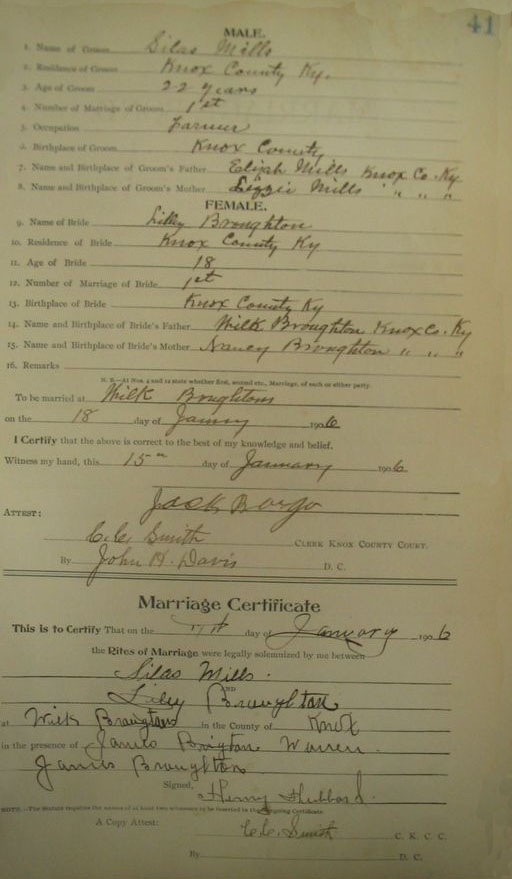 41
MALE.
1. Name of Groom Silas Mills
2. Residence of Groom Knox County Ky.
3. Age of Groom 22 years
4. Number of Marriage of Groom 1st
5. Occupation Farmer
6. Birthplace of Groom Knox County
7. Name and Birthplace of Groom's Father Elijah Mills Knox Co. Ky
8. Name and Birthplace of Groom's Mother Lizzie Mills " " "
FEMALE.
9. Name of Bride Lilly Broughton
10. Residence of Bride Knox County Ky
11. Age of Bride 18
12. Number of Marriage of Bride 1st
13. Birthplace of Bride Knox County Ky
14. Name and Birthplace of Bride's Father Wilk Broughton Knox Co. Ky
15. Name and Birthplace of Bride's Mother Nancy Broughton " " "
16. Remarks
N. B.—At Nos. 4 and 12 state whether first, second etc., Marriage, of each or either party.
To be married at Wilk Broughtons
on the 18 day of 1906
I Certify that the above is correct to the best of my knowledge and belief.
Witness my hand, this 15th day of January 1906
Jack
ATTEST:
C.C. Smith CLERK KNOX COUNTY COURT.
By John H. Davis D. C.
Marriage Certificate
This is to Certify That on the day of January 1906
the Rites of Marriage were legally solemnized by me between
Silas Mills.
AND
Liley Broughton
at Wilk Broughtons in the County of Knox
in the presence of James Warren
James Broughton
Signed, Henry Hubbard.
NOTE.—The Statute requires the names of at least two witnesses to be inserted in the Certificate.
A Copy Attest: C.C. Smith C. K. C. C.
By D. C.